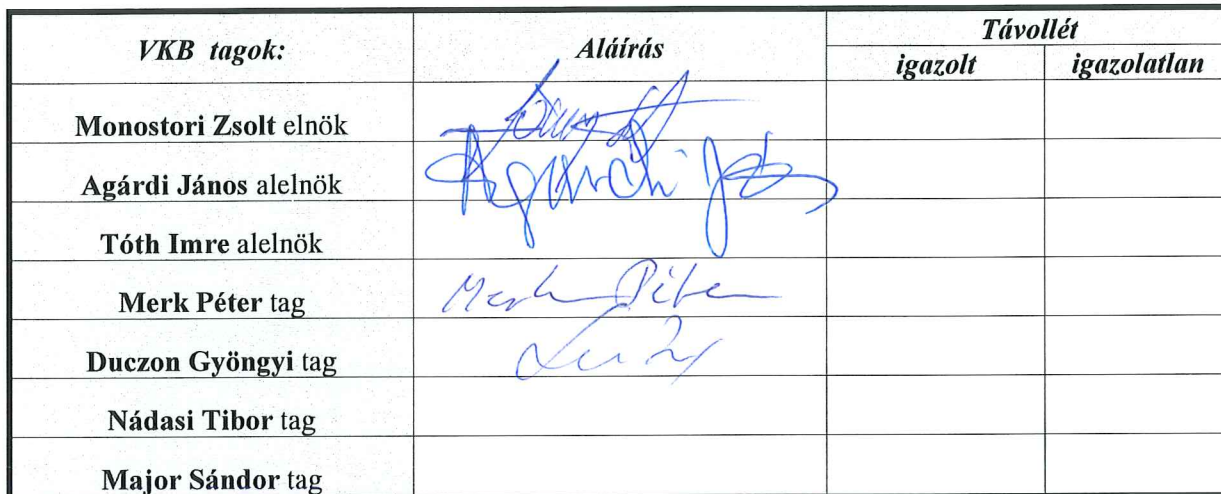 VKB tagok: Aláírás Távollét
igazolt igazolatlan
Monostori Zsolt elnök
Agárdi János alelnök Agárdi János
Tóth Imre alelnök
Merk Péter tag Merk Péter
Duczon Gyöngyi tag
Nádasi Tibor tag
Major Sándor tag